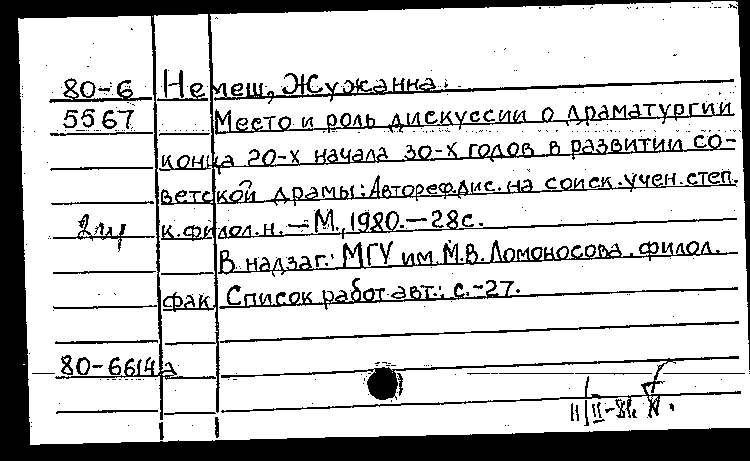 80-6 Немеш, Жужанна.
5567 Место и роль дискуссии о драматургии
конца 20-х начала 30-х годов в развитии со-
ветской драмы: Автореф.дис. на соиск. учен. степ.
2м к.филол.н. — М., 1980. — 28с.
В надзаг.: МГУ им. М.В. Ломоносова. филол.
фак. Список работ авт.: с.-27.
80-6614а
11/II-81.